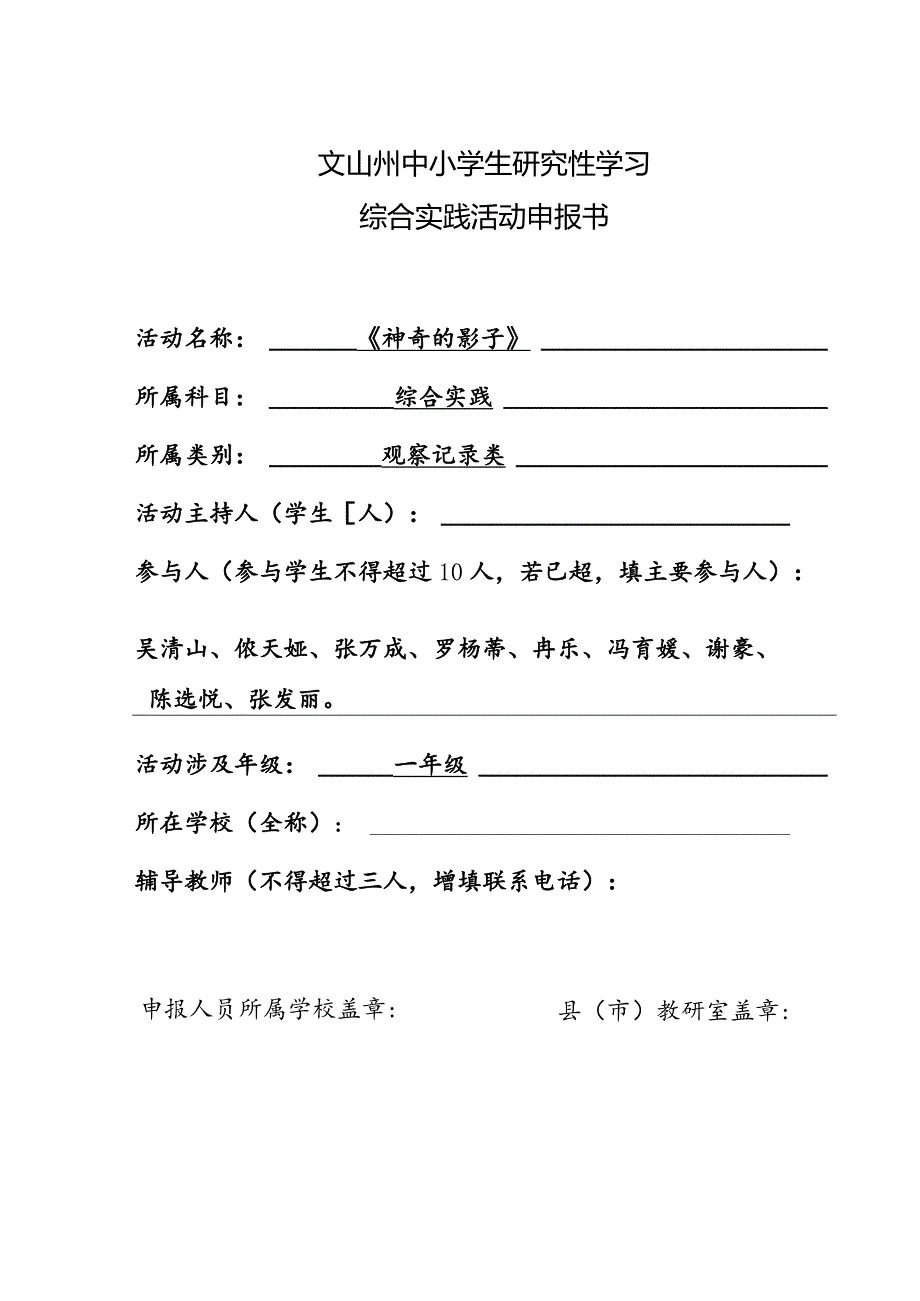 文山州中小学生研究性学习
综合实践活动申报书
活动名称：《神奇的影子》
所属科目：综合实践
所属类别：观察记录类
活动主持人（学生［人）：
参与人（参与学生不得超过10人，若已超，填主要参与人）：
吴清山、侬天娅、张万成、罗杨蒂、冉乐、冯育媛、谢豪、
陈选悦、张发丽。
活动涉及年级：一年级
所在学校（全称）：
辅导教师（不得超过三人，增填联系电话）：
申报人员所属学校盖章: 县（市）教研室盖章: